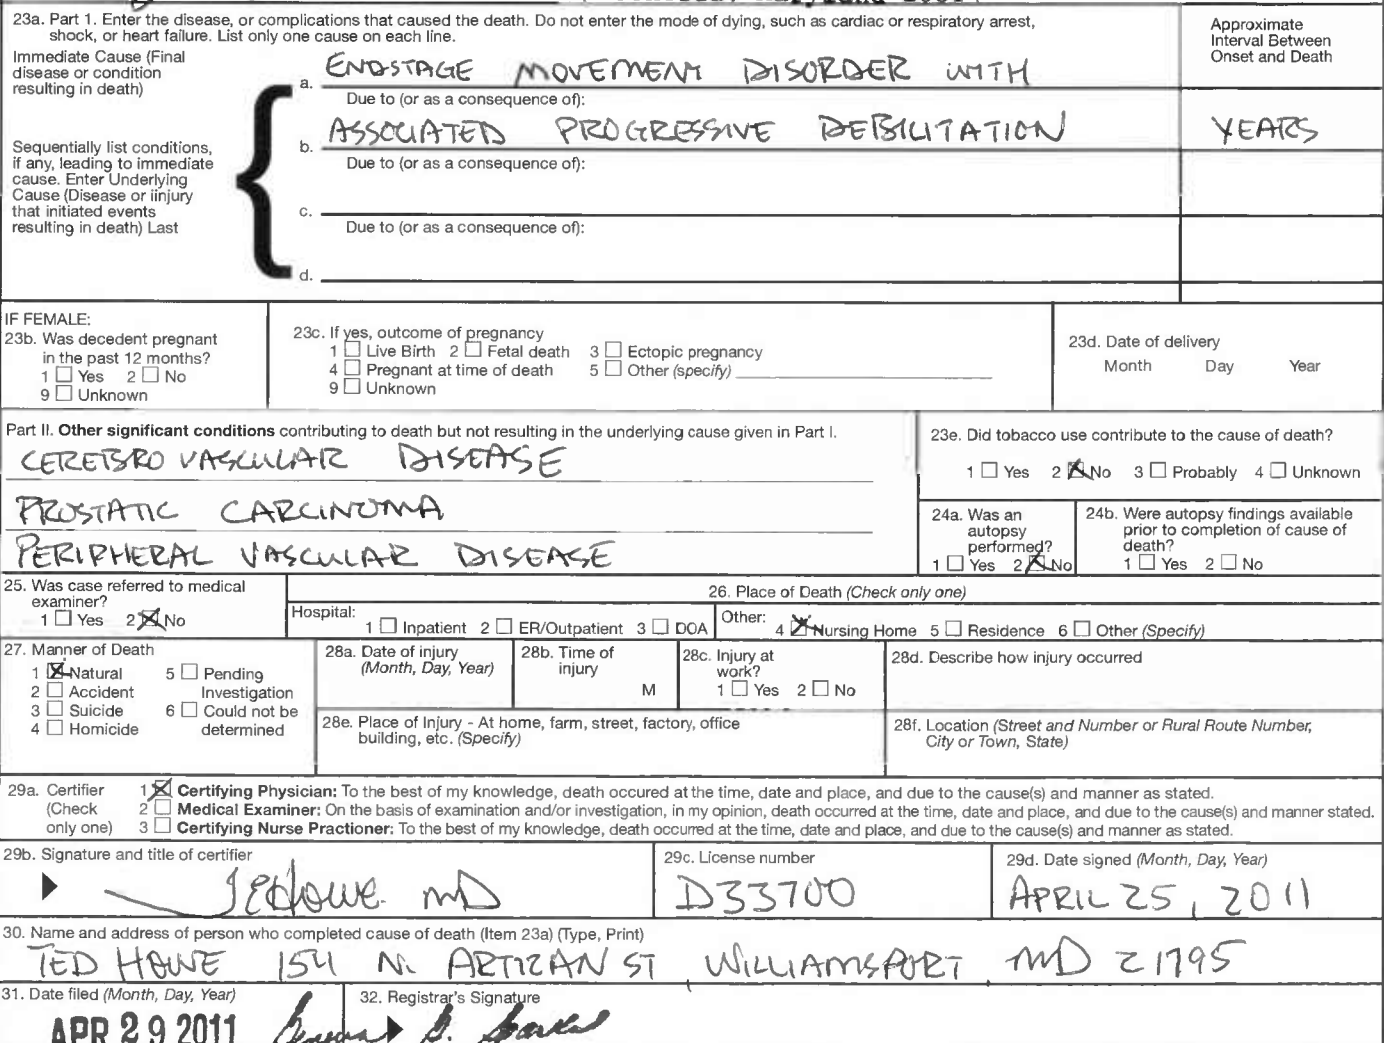 23a. Part 1. Enter the disease, or complications that caused the death. Do not enter the mode of dying, such as cardiac or respiratory arrest,
shock, or heart failure. List only one cause on each line.
Approximate
Interval Between
Onset and Death
Immediate Cause (Final
disease or condition
resulting in death)
a. ENDSTAGE MOVEMENT DISORDER WITH
Due to (or as a consequence of):
b. ASSOCIATED PROGRESSIVE DEBILITATION YEARS
Sequentially list conditions,
if any, leading to immediate
cause. Enter Underlying
Cause (Disease or iinjury
that initiated events
resulting in death) Last
Due to (or as a consequence of):
c.
Due to (or as a consequence of):
d.
IF FEMALE:
23b. Was decedent pregnant
in the past 12 months?
1 Yes 2 No
9 Unknown
23c. If yes, outcome of pregnancy
1 Live Birth 2 Fetal death 3 Ectopic pregnancy
4 Pregnant at time of death 5 Other (specify)
9 Unknown
23d. Date of delivery
Month Day Year
Part II. Other significant conditions contributing to death but not resulting in the underlying cause given in Part I.
CEREBROVASCULAR DISEASE
PROSTATIC CARCINOMA
PERIPHERAL VASCULAR DISEASE
23e. Did tobacco use contribute to the cause of death?
1 Yes 2 No 3 Probably 4 Unknown
24a. Was an
autopsy
performed?
1 Yes 2 No
24b. Were autopsy findings available
prior to completion of cause of
death?
1 Yes 2 No
25. Was case referred to medical
examiner?
1 Yes 2 No
26. Place of Death (Check only one)
Hospital: 1 Inpatient 2 ER/Outpatient 3 DOA
Other: 4 Nursing Home 5 Residence 6 Other (Specify)
27. Manner of Death
1 Natural 5 Pending
2 Accident Investigation
3 Suicide 6 Could not be
4 Homicide determined
28a. Date of injury
(Month, Day, Year)
28b. Time of
injury
M
28c. Injury at
work?
1 Yes 2 No
28d. Describe how injury occurred
28e. Place of Injury - At home, farm, street, factory, office
building, etc. (Specify)
28f. Location (Street and Number or Rural Route Number,
City or Town, State)
29a. Certifier
(Check
only one)
1 Certifying Physician: To the best of my knowledge, death occured at the time, date and place, and due to the cause(s) and manner as stated.
2 Medical Examiner: On the basis of examination and/or investigation, in my opinion, death occurred at the time, date and place, and due to the cause(s) and manner stated.
3 Certifying Nurse Practioner: To the best of my knowledge, death occurred at the time, date and place, and due to the cause(s) and manner as stated.
29b. Signature and title of certifier
Howe MD
29c. License number
D33700
29d. Date signed (Month, Day, Year)
APRIL 25, 2011
30. Name and address of person who completed cause of death (Item 23a) (Type, Print)
TED HOWE 154 N. ARTIZAN ST WILLIAMSPORT MD 21795
31. Date filed (Month, Day, Year)
APR 29 2011
32. Registrar's Signature